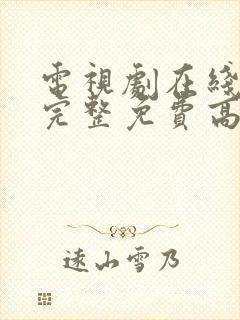 電視劇在綫
完整免費高
遠山雪乃